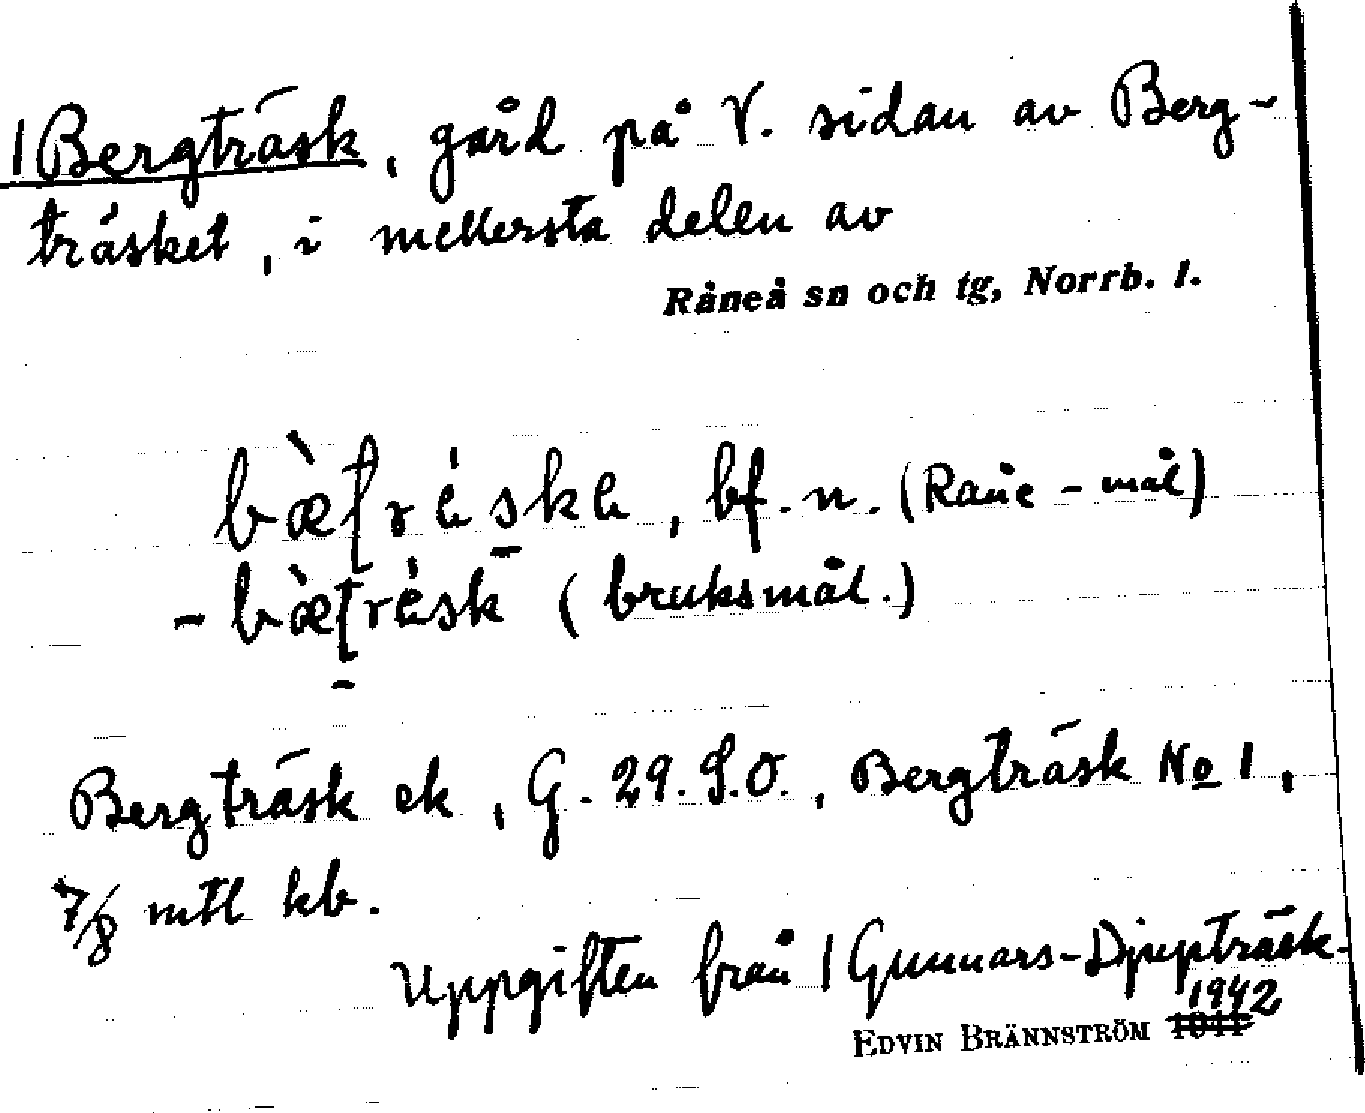 1 Bergträsk, gård på V. sidan av Berg-
träsket, i mellersta delen av
Råneå sn och tg, Norrb. l.
bæ̀ʃréske, bf. n. (Råne-mål)
- bæ̀ʃrésk (bruksmål.)
Bergträsk ek, G. 29. S.O., Bergträsk No 1,
7/8 mtl kb.
Uppgiften från 1 Gunnars-Djupträsk.
1942
EDVIN BRÄNNSTRÖM 1941